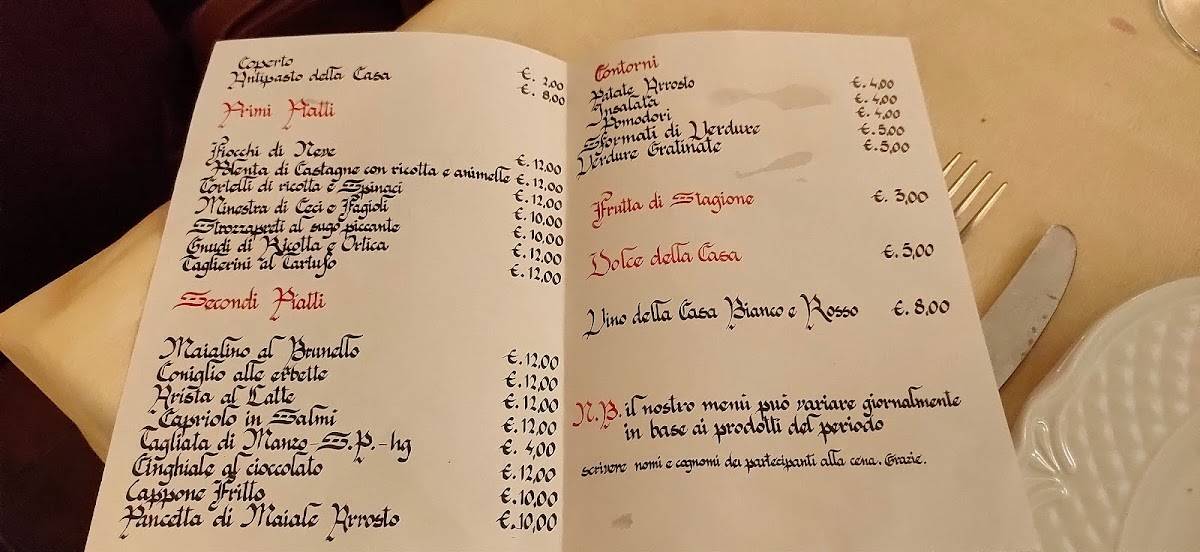 Coperto €. 2,00
Antipasto della Casa €. 8,00
Primi Piatti
Fiocchi di Neve €. 12,00
Polenta di Castagne con ricotta e animelle €. 12,00
Tortelli di ricotta e Spinaci €. 12,00
Minestra di Ceci e Fagioli €. 10,00
Strozzapreti al sugo piccante €. 10,00
Gnudi di Ricotta e Ortica €. 12,00
Taglierini al Tartufo €. 12,00
Secondi Piatti
Maialino al Brunello €. 12,00
Coniglio alle erbette €. 12,00
Arista al Latte €. 12,00
Capriolo in Salmi €. 12,00
Tagliata di Manzo-S.P.-hg €. 4,00
Cinghiale al cioccolato €. 12,00
Cappone Fritto €. 10,00
Pancetta di Maiale Arrosto €. 10,00
Contorni
Patate Arrosto €. 4,00
Insalata €. 4,00
Pomodori €. 4,00
Sformati di Verdure €. 5,00
Verdure Gratinate €. 5,00
Frutta di Stagione €. 3,00
Dolce della Casa €. 5,00
Vino della Casa Bianco e Rosso €. 8,00
N.B. il nostro menù può variare giornalmente
in base ai prodotti del periodo
scrivere nomi e cognomi dei partecipanti alla cena. Grazie.